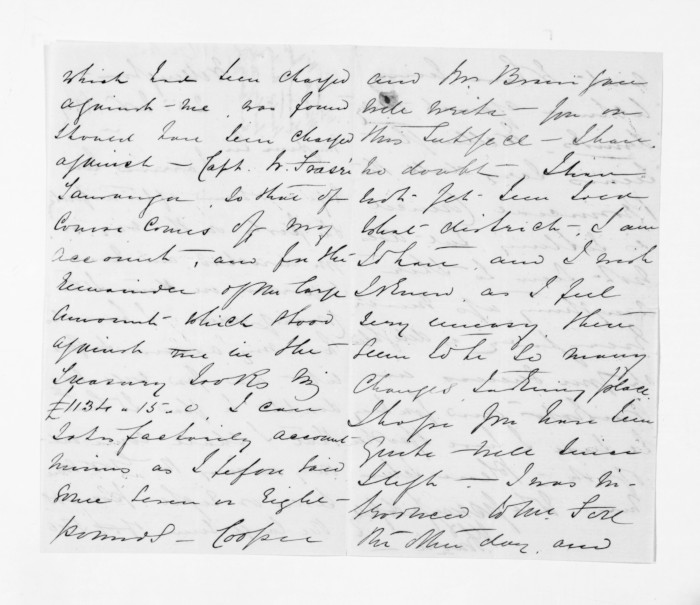 which had been charged
against me was found
should have been charged
against Capt. W. Fraser
Tauranga, so that of
course comes off my
account, and for the
remainder of the large
amount which stood
against me in the
Treasury Books viz
£1134-15-0. I can
satisfactorily account
minus as I before said
some seven or eight
pounds - Cooper
and Mr Branigan
will write you on
this subject - I have
no doubt. I have
not yet been told
what district I am
to have and I wish
I knew as I feel
very uneasy. there
seem to be so many
changes taking place
I hope you have been
quite well since
I left - I was in-
troduced to Mr
the other day and